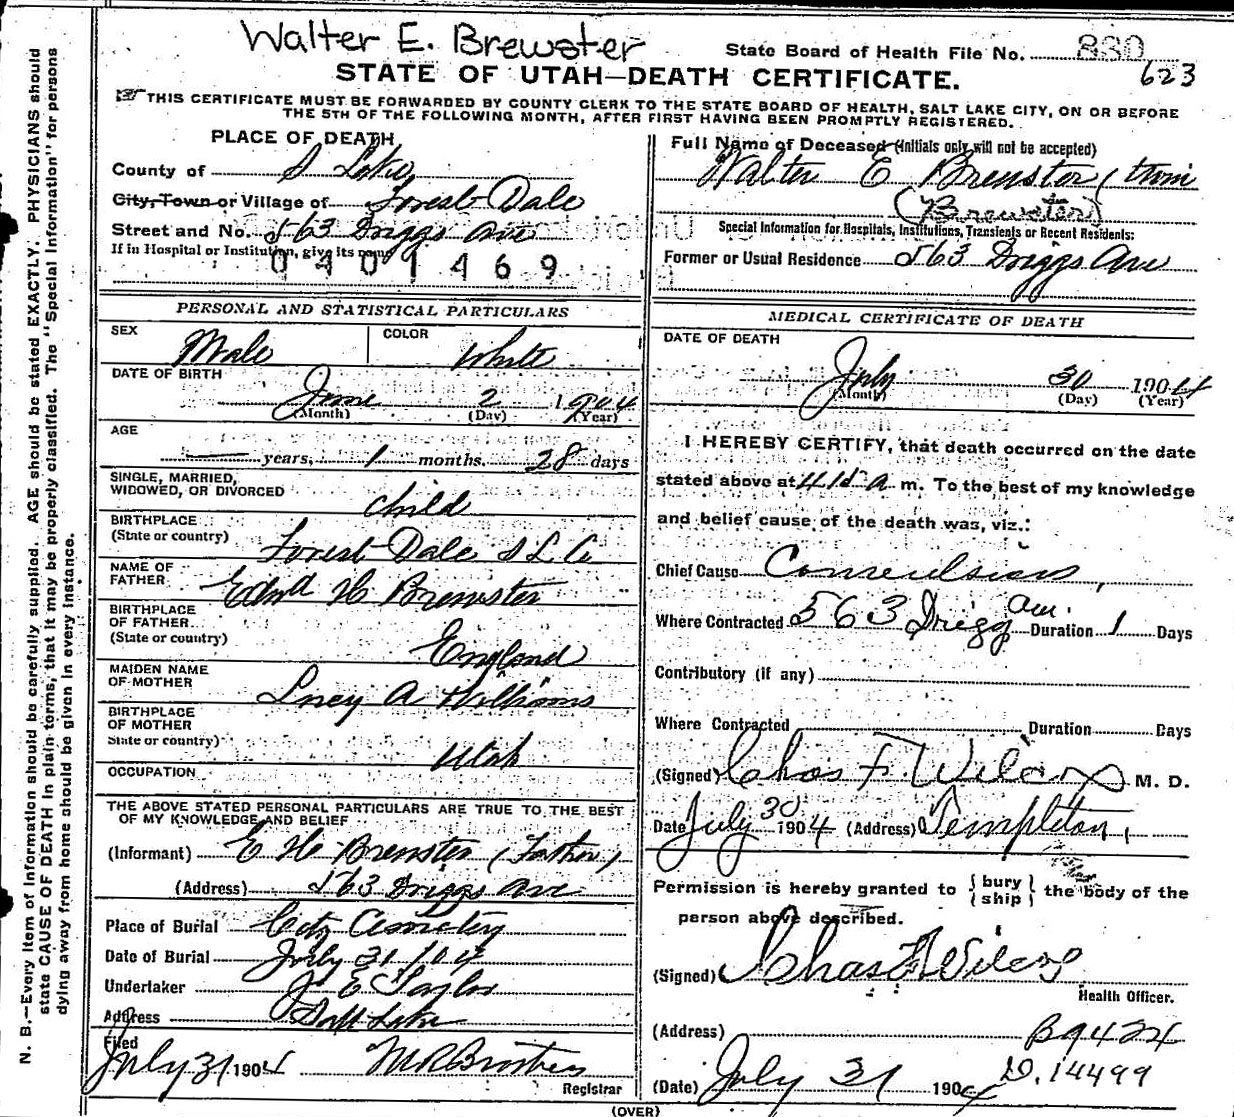 Walter E. Brewster
State Board of Health File No. 830
623
STATE OF UTAH—DEATH CERTIFICATE.
THIS CERTIFICATE MUST BE FORWARDED BY COUNTY CLERK TO THE STATE BOARD OF HEALTH, SALT LAKE CITY, ON OR BEFORE
THE 5TH OF THE FOLLOWING MONTH, AFTER FIRST HAVING BEEN PROMPTLY REGISTERED.
N. B.—Every item of information should be carefully supplied. AGE should be stated EXACTLY. PHYSICIANS should
state CAUSE OF DEATH in plain terms, that it may be properly classified. The "Special Information" for persons
dying away from home should be given in every instance.
PLACE OF DEATH
County of S Lake
City, Town or Village of Forest Dale
Street and No. 563 Driggs Ave
If in Hospital or Institution, give its name
0401469
PERSONAL AND STATISTICAL PARTICULARS
SEX Male COLOR White
DATE OF BIRTH June 2 1904
(Month) (Day) (Year)
AGE
— years, 1 months. 28 days
SINGLE, MARRIED,
WIDOWED, OR DIVORCED child
BIRTHPLACE
(State or country) Forest Dale S L Co
NAME OF
FATHER Edwd H Brewster
BIRTHPLACE
OF FATHER
(State or country) England
MAIDEN NAME
OF MOTHER Lucy A Williams
BIRTHPLACE
OF MOTHER
State or country) Utah
OCCUPATION
THE ABOVE STATED PERSONAL PARTICULARS ARE TRUE TO THE BEST
OF MY KNOWLEDGE AND BELIEF
(Informant) E H Brewster (Father)
(Address) 563 Driggs Ave
Place of Burial City Cemetery
Date of Burial July 31 1904
Undertaker J E Taylor
Address Salt Lake
Filed
July 31 1904
Registrar
Full Name of Deceased (Initials only will not be accepted)
Walter E Brewster (twin
(Brewster)
Special Information for Hospitals, Institutions, Transients or Recent Residents:
Former or Usual Residence 563 Driggs Ave
MEDICAL CERTIFICATE OF DEATH
DATE OF DEATH
July 30 1904
(Month) (Day) (Year)
I HEREBY CERTIFY, that death occurred on the date
stated above at a m. To the best of my knowledge
and belief cause of the death was, viz.:
Chief Cause Convulsions,
Where Contracted 563 Drigg ave. Duration 1 Days
Contributory (if any)
Where Contracted Duration Days
(Signed) Chas F. Wilcox M. D.
Date July 30 1904 (Address) Templeton,
Permission is hereby granted to {bury
ship} the body of the
person above described.
(Signed) Chas F Wilcox
Health Officer.
(Address) B9424
D.14499
(Date) July 31 1904
(OVER)